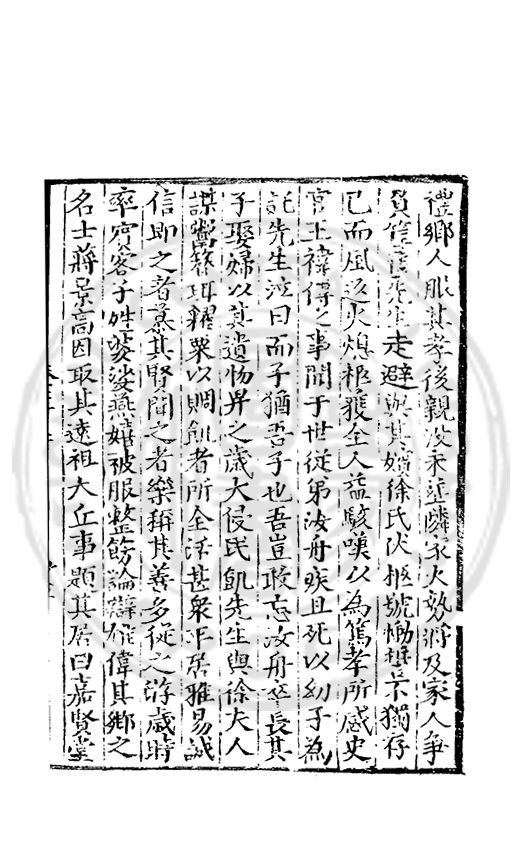 禮鄉人服其孝後親沒未塟鄰家火勢將及家人爭
負篋走先生走避與其嬪徐氏伏柩號慟誓不獨存
已而風返火熄柩獲全人益駭嘆以為篤孝所感史
官王禕傳之事聞于世從弟汝舟疾且死以幼子為
託先生泣曰而子猶吾子也吾豈敢忘汝舟卒長其
子娶婦以其遺物畀之歲大侵民飢先生與徐夫人
謀鬻簪珥糴粟以賙飢者所全活甚衆平居雅易誠
信即之者慕其賢聞之者樂稱其善多從之游歲時
率賓客子姓婆娑燕嬉被服整飭論辯雄偉其鄉之
名士蔣景高因取其遠祖大丘事題其居曰嘉賢堂